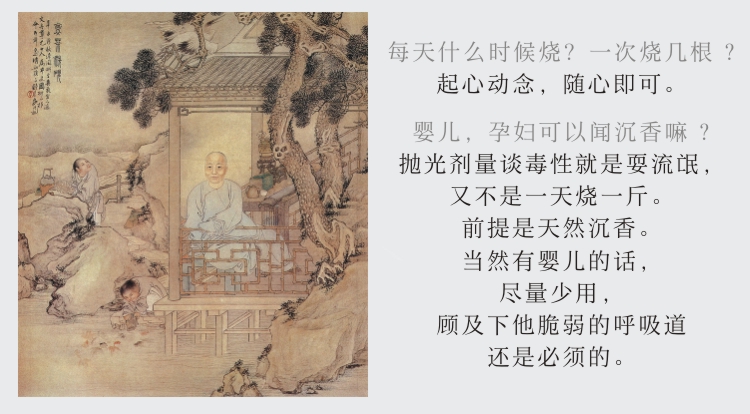 每天什么时候烧？一次烧几根？
起心动念，随心即可。
婴儿，孕妇可以闻沉香嘛？
抛光剂量谈毒性就是耍流氓，
又不是一天烧一斤。
前提是天然沉香。
当然有婴儿的话，
尽量少用，
顾及下他脆弱的呼吸道
还是必须的。